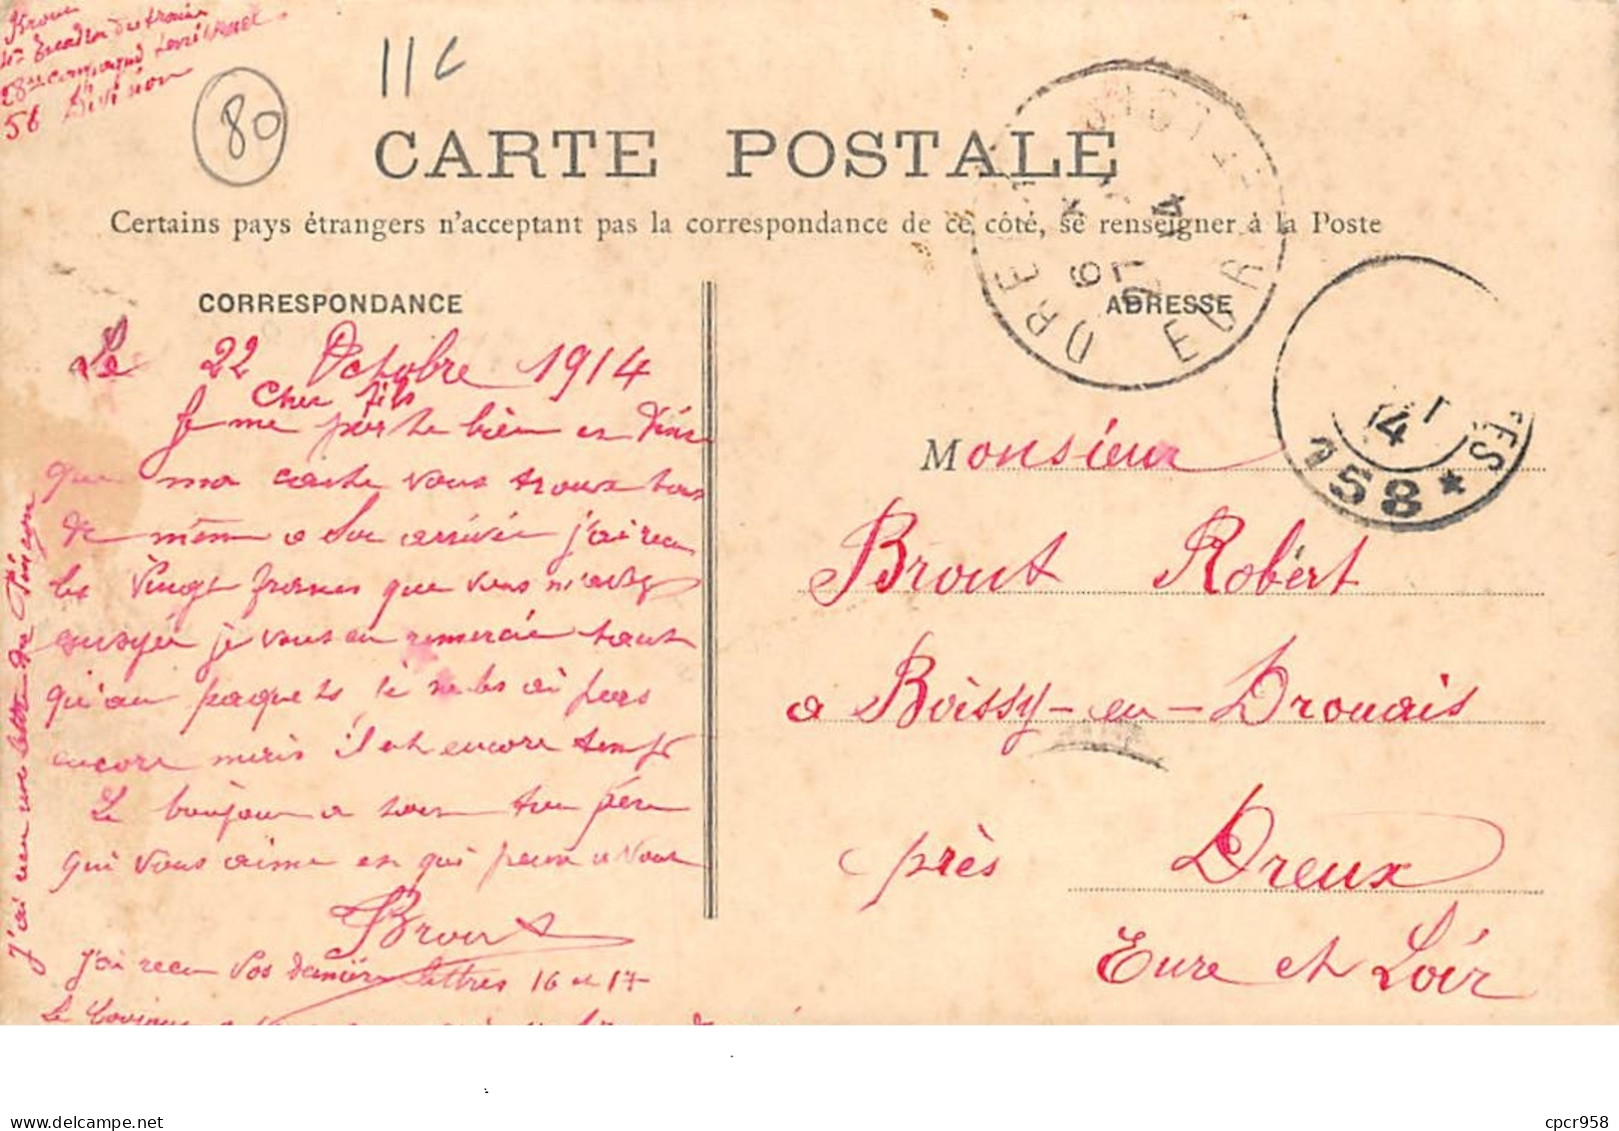 Brout
4me Escadron du train
28me compagnie territorial
58 Division
11C
80
CARTE POSTALE
Certains pays étrangers n'acceptent pas la correspondance de ce côté, se renseigner à la Poste
CORRESPONDANCE
ADRESSE
Le 22 Octobre 1914
Cher fils
Je me porte bien et désir
que ma carte vous trouve tous
de même a Son arrivée j'ai recu
les vingt francs que vous m'avez
envoyée je vous en remercie tout
qu'au paquets je ne les ai pas
encore meris il est encore temps
Le bonjour a tous ton père
qui vous aime et qui pense a vous
Brout
J'ai recu vos dernière lettres 16 et 17
Le
J'ai recu une lettre de
Monsieur
Brout Robert
a Boissy-en-Drouais
près Dreux
Eure et Loir
DREUX
EUR
14
158
delcampe.net
cpcr958